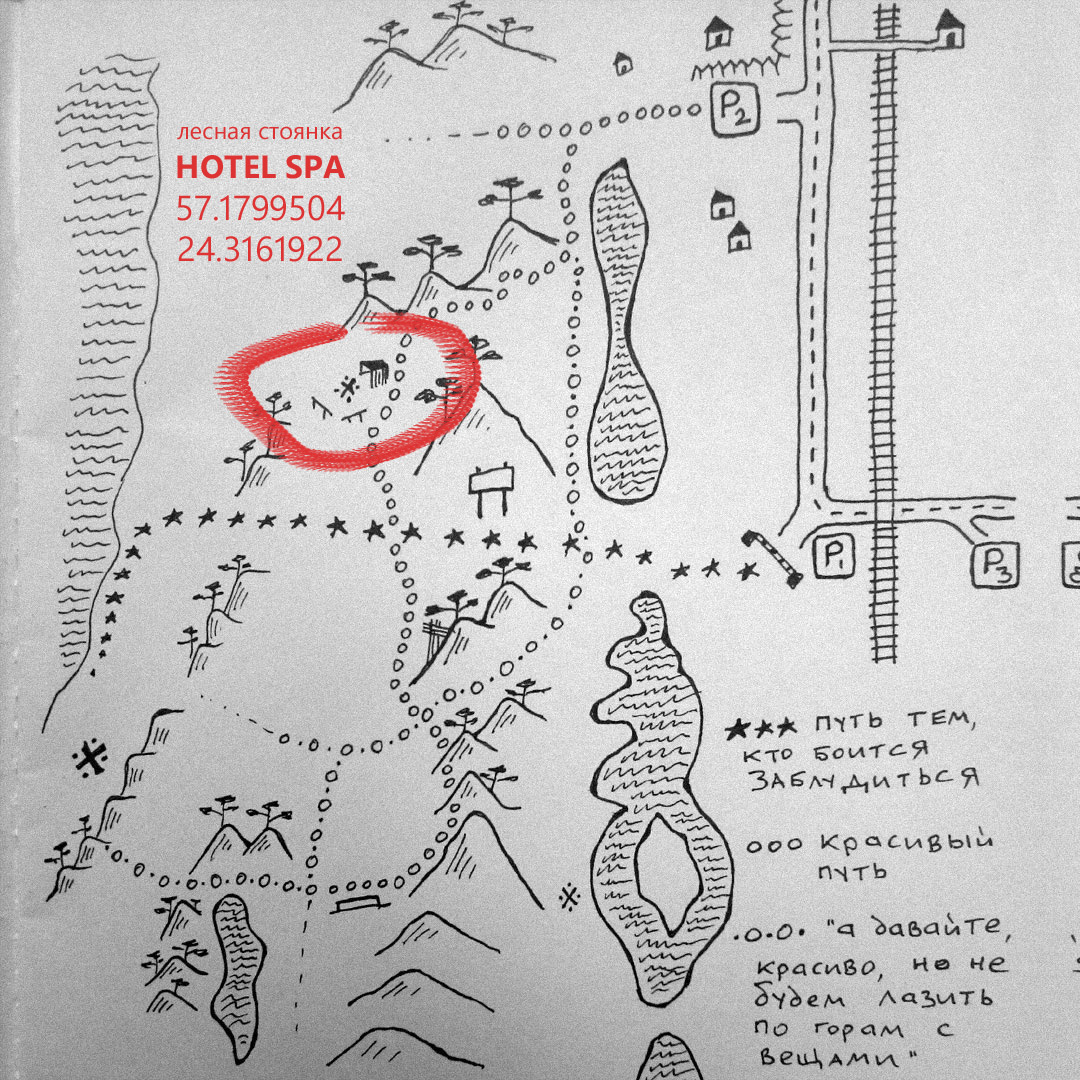 лесная стоянка
HOTEL SPA
57.1799504
24.3161922
P2
P1
P3
путь тем,
кто боится
заблудиться
красивый
путь
"а давайте,
красиво, но не
будем лазить
по горам с
вещами"